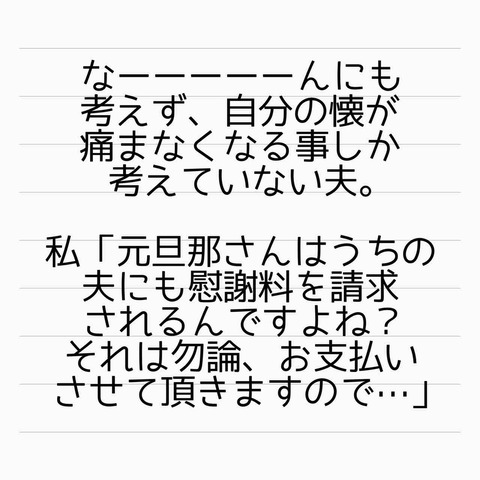 なーーーーーんにも
考えず、自分の懐が
痛まなくなる事しか
考えていない夫。
私「元旦那さんはうちの
夫にも慰謝料を請求
されるんですよね？
それは勿論、お支払い
させて頂きますので…」